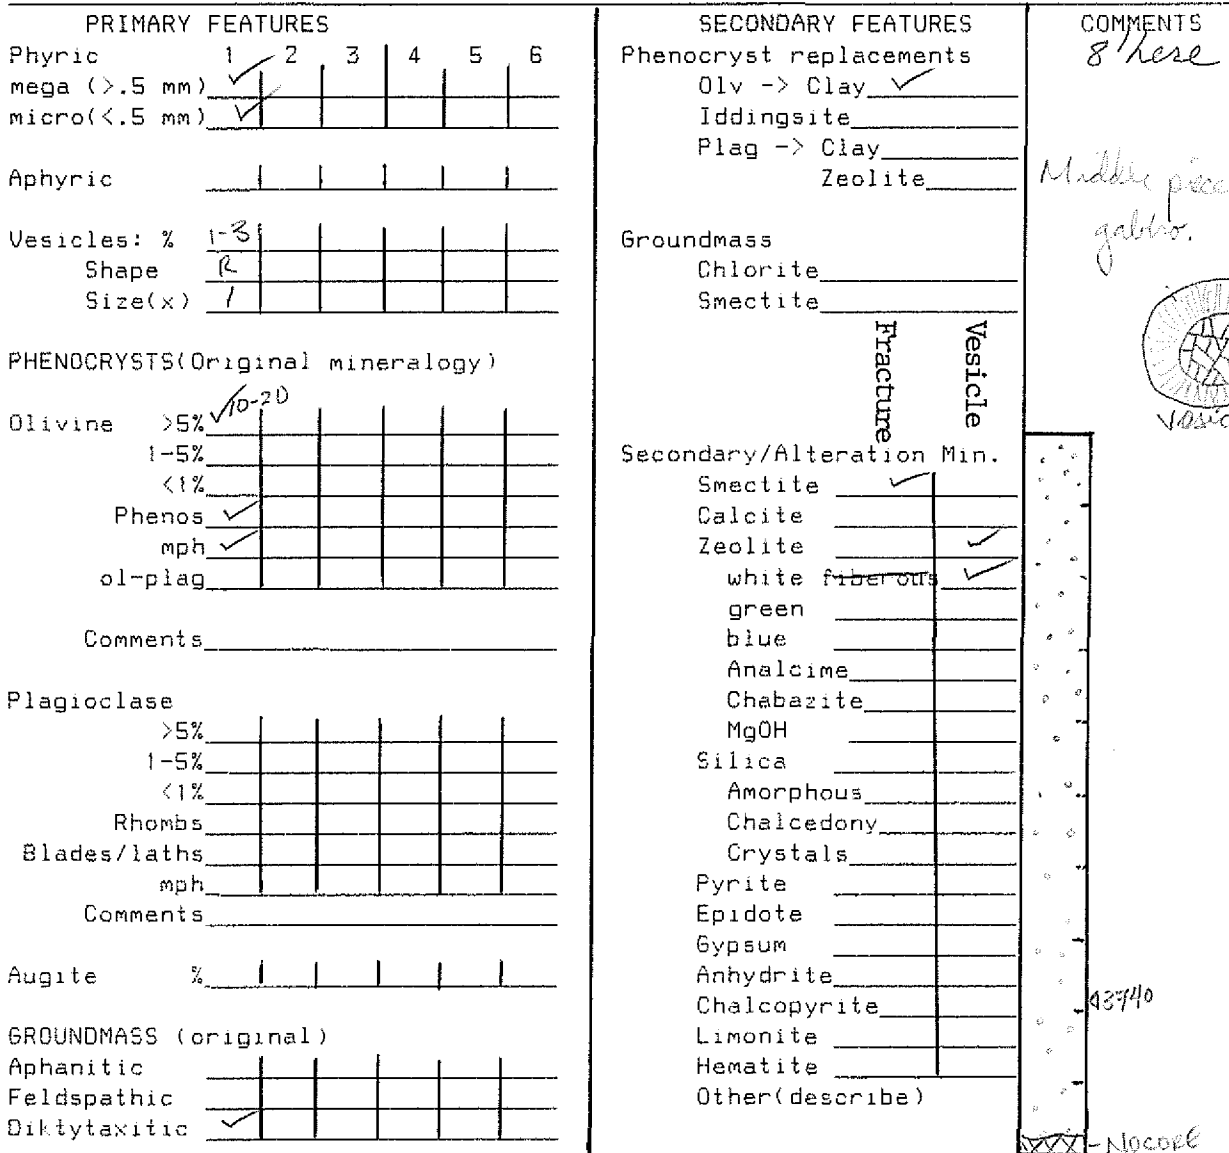 PRIMARY FEATURES
Phyric 1 2 3 4 5 6
mega (>.5 mm) ✓
micro(<.5 mm) ✓
Aphyric
Vesicles: % 1-3
Shape R
Size(x) 1
PHENOCRYSTS(Original mineralogy)
Olivine >5% ✓10-20
1-5%
<1%
Phenos ✓
mph ✓
ol-plag
Comments
Plagioclase
>5%
1-5%
<1%
Rhombs
Blades/laths
mph
Comments
Augite %
GROUNDMASS (original)
Aphanitic
Feldspathic
Diktytaxitic ✓
SECONDARY FEATURES
Phenocryst replacements
Olv -> Clay ✓
Iddingsite
Plag -> Clay
Zeolite
Groundmass
Chlorite
Smectite
Fracture
Vesicle
Secondary/Alteration Min.
Smectite ✓
Calcite
Zeolite ✓
white fiberous ✓
green
blue
Analcime
Chabazite
MgOH
Silica
Amorphous
Chalcedony
Crystals
Pyrite
Epidote
Gypsum
Anhydrite
Chalcopyrite
Limonite
Hematite
Other(describe)
COMMENTS
8' here
Middle piece
gabbro.
vesic
3940
- NOCORE